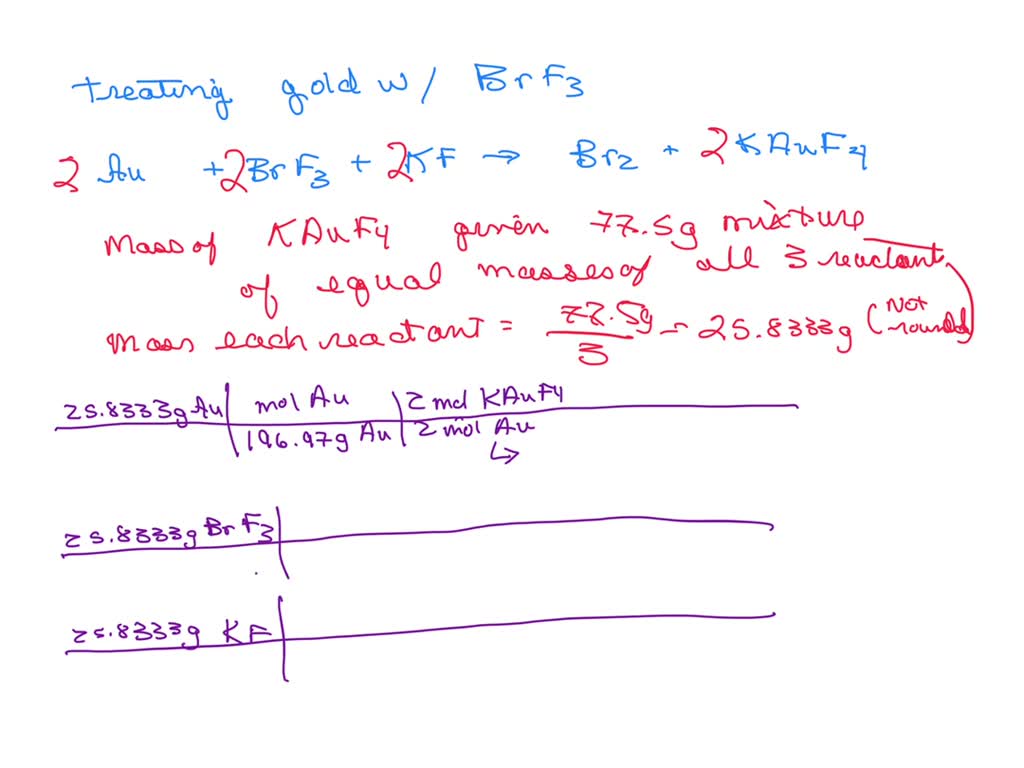 treating gold w/ BrF3
2 Au + 2BrF3 + 2KF → Br2 + 2KAuF4
Mass of KAuF4 given 77.5g mixture
of equal masses of all 3 reactant
Mass each reactant = 77.5g / 3 = 25.8333g (Not rounded)
25.8333g Au | mol Au | 2 mol KAuF4
196.97g Au | 2 mol Au
↳
25.8333g BrF3
25.8333g KF